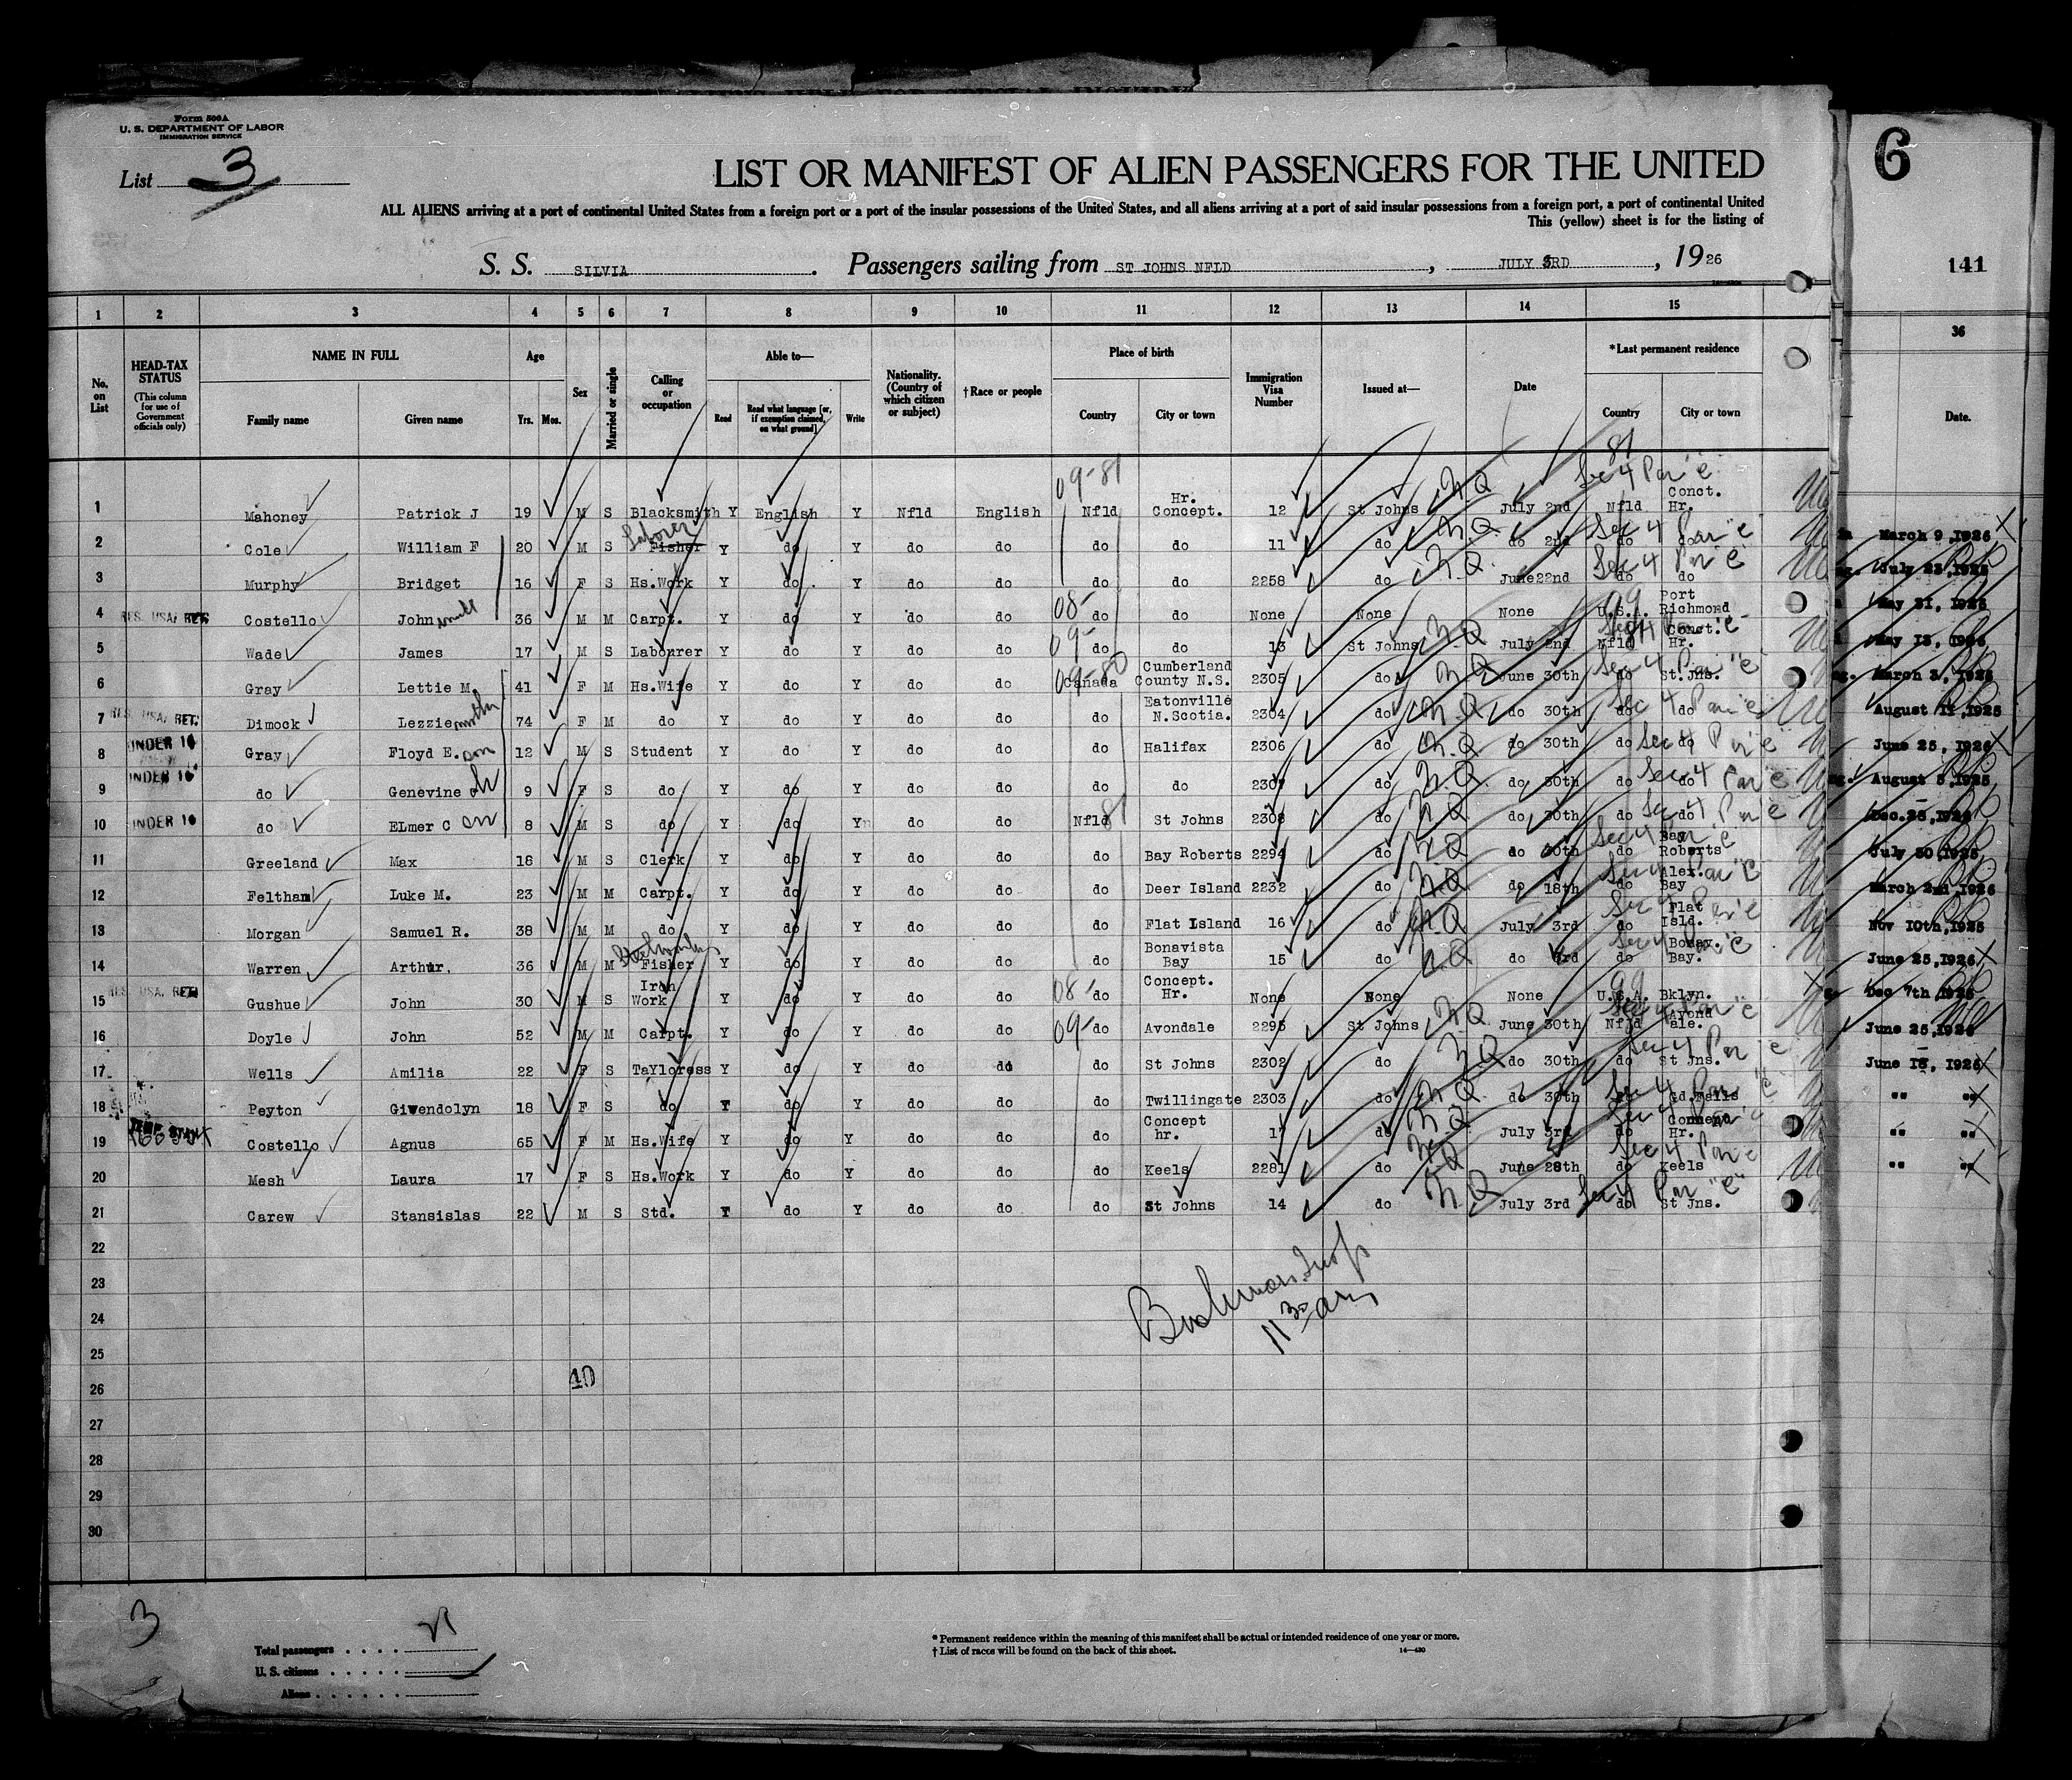 Form 500A
U. S. DEPARTMENT OF LABOR
IMMIGRATION SERVICE
List 3
LIST OR MANIFEST OF ALIEN PASSENGERS FOR THE UNITED
ALL ALIENS arriving at a port of continental United States from a foreign port or a port of the insular possessions of the United States, and all aliens arriving at a port of said insular possessions from a foreign port, a port of continental United
This (yellow) sheet is for the listing of
S. S. SILVIA . Passengers sailing from ST JOHNS NFLD , JULY 3RD , 1926
6
141
1 2 3 4 5 6 7 8 9 10 11 12 13 14 15 36
No. on List HEAD-TAX STATUS (This column for use of Government officials only) NAME IN FULL Family name Given name Age Yrs. Mos. Sex Married or single Calling or occupation Able to— Read Read what language [or, if exemption claimed, on what ground] Write Nationality. (Country of which citizen or subject) † Race or people Place of birth Country City or town Immigration Visa Number Issued at— Date * Last permanent residence Country City or town Date.
09-81 81
1 Mahoney Patrick J 19 M S Blacksmith Y English Y Nfld English Nfld Hr. Concept. 12 St Johns N.Q July 2nd Sec 4 Par "e" Nfld Conct. Hr.
2 Cole William F 20 M S Laborer Fisher Y do Y do do do do 11 do N.Q do 2nd Sec 4 Par "e" do do March 9, 1926
3 Murphy Bridget 16 F S Hs.Work Y do Y do do do do 2258 do N.Q. June 22nd Sec 4 Par "e" do do July 23, 1925
4 RES. USA. RET. Costello John 36 M M Carpt. Y do Y do do 08- do do None None None 99 U.S.A. Port Richmond May 21, 1925
5 Wade James 17 M S Labourer Y do Y do do 09- do do 13 St Johns N.Q July 2nd Nfld Conct. Hr. May 15, 1926
6 Gray Lettie M. 41 F M Hs.Wife Y do Y do do 09-80 Canada Cumberland County N.S. 2305 do N.Q June 30th Sec 4 Par "e" do St.Jns. March 3, 1926
7 RES. USA. RET. Dimock Lezzie mother 74 F M do Y do Y do do do Eatonville N.Scotia. 2304 do N.Q do 30th Sec 4 Par "e" do do August 11, 1925
8 UNDER 16 Gray Floyd E. son 12 M S Student Y do Y do do do Halifax 2306 do N.Q do 30th do Sec 4 Par "e" do June 25, 1926
9 UNDER 16 do Genevine ch 9 F S do Y do Y do do do do 2307 do N.Q do 30th do Sec 4 Par "e" do August 5, 1925
10 UNDER 16 do ELmer C on 8 M S do Y do Y do do Nfld 81 St Johns 2308 do N.Q do 30th do Sec 4 Par "e" do Dec. 23, 1925
11 Greeland Max 18 M S Clerk Y do Y do do do Bay Roberts 2294 do N.Q do 30th Sec 4 Par "e" do Bay Roberts July 30, 1925
12 Feltham Luke M. 23 M M Carpt. Y do Y do do do Deer Island 2232 do N.Q do 18th Sec 4 Par "e" do Alex. Bay March 2nd, 1926
13 Morgan Samuel R. 38 M M do Y do Y do do do Flat Island 16 do N.Q July 3rd Sec 4 Par "e" do Flat Isld. Nov 10th, 1925
14 Warren Arthur. 36 M M Fisher Y do Y do do do Bonavista Bay 15 do N.Q do 3rd Sec 4 Par "e" do Bonav. Bay. June 25, 1926
15 RES. USA. RET. Gushue John 30 M S Iron Work Y do Y do do 08- do Concept. Hr. None None None 99 U.S.A. Bklyn. Dec 7th, 1925
16 Doyle John 52 M M Carpt. Y do Y do do 09- do Avondale 2295 St Johns N.Q June 30th Sec 4 Par "e" Nfld Avondale. June 25, 1926
17 Wells Amilia 22 F S TaYloress Y do Y do do do St Johns 2302 do N.Q do 30th Sec 4 Par "e" do St Jns. June 18, 1926
18 Peyton Giwendolyn 18 F S do Y do Y do do do Twillingate 2303 do N.Q. do 30th Sec 4 Par "e" do Gd.Falls " "
19 Costello Agnus 65 F M Hs.Wife Y do Y do do do Concept hr. 17 do N.Q July 3rd Sec 4 Par "e" do Hr. " "
20 Mesh Laura 17 F S Hs.Work Y do Y do do do Keels 2281 do N.Q June 28th Sec 4 Par "e" do Keels " "
21 Carew Stansislas 22 M S Std. Y do Y do do do St Johns 14 do N.Q July 3rd Sec 4 Par "e" do St Jns.
22
23
24
25
26
27
28
29
30
11 30 am
40
3
Total passengers . . . . 21
U. S. citizens . . . . .
Aliens . . . . . .
* Permanent residence within the meaning of this manifest shall be actual or intended residence of one year or more.
† List of races will be found on the back of this sheet.
14—430